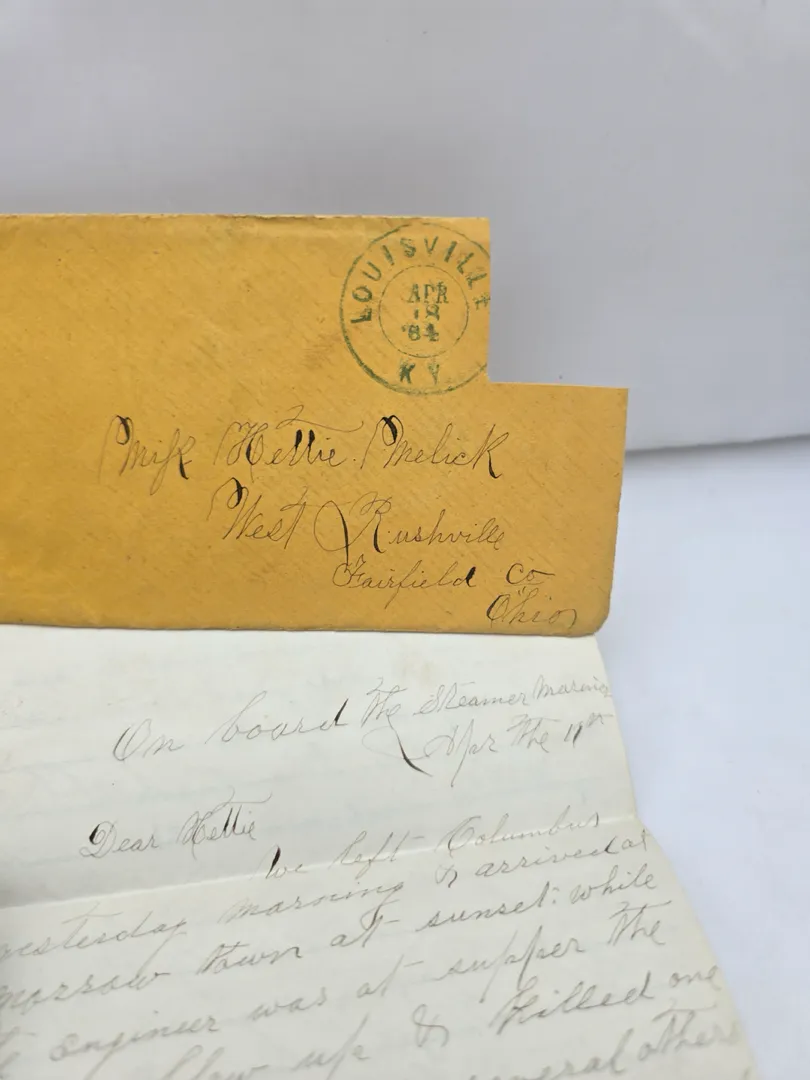 LOUISVILLE
APR
18
'64
KY.
Miss Hettie Melick
West Rushville
Fairfield Co
Ohio
On board the Steamer Marine
Apr the 11th
Dear Hettie
we left Columbus
yesterday morning & arrived at
morrow town at sunset: while
engineer was at supper the
blow up & killed one
several others